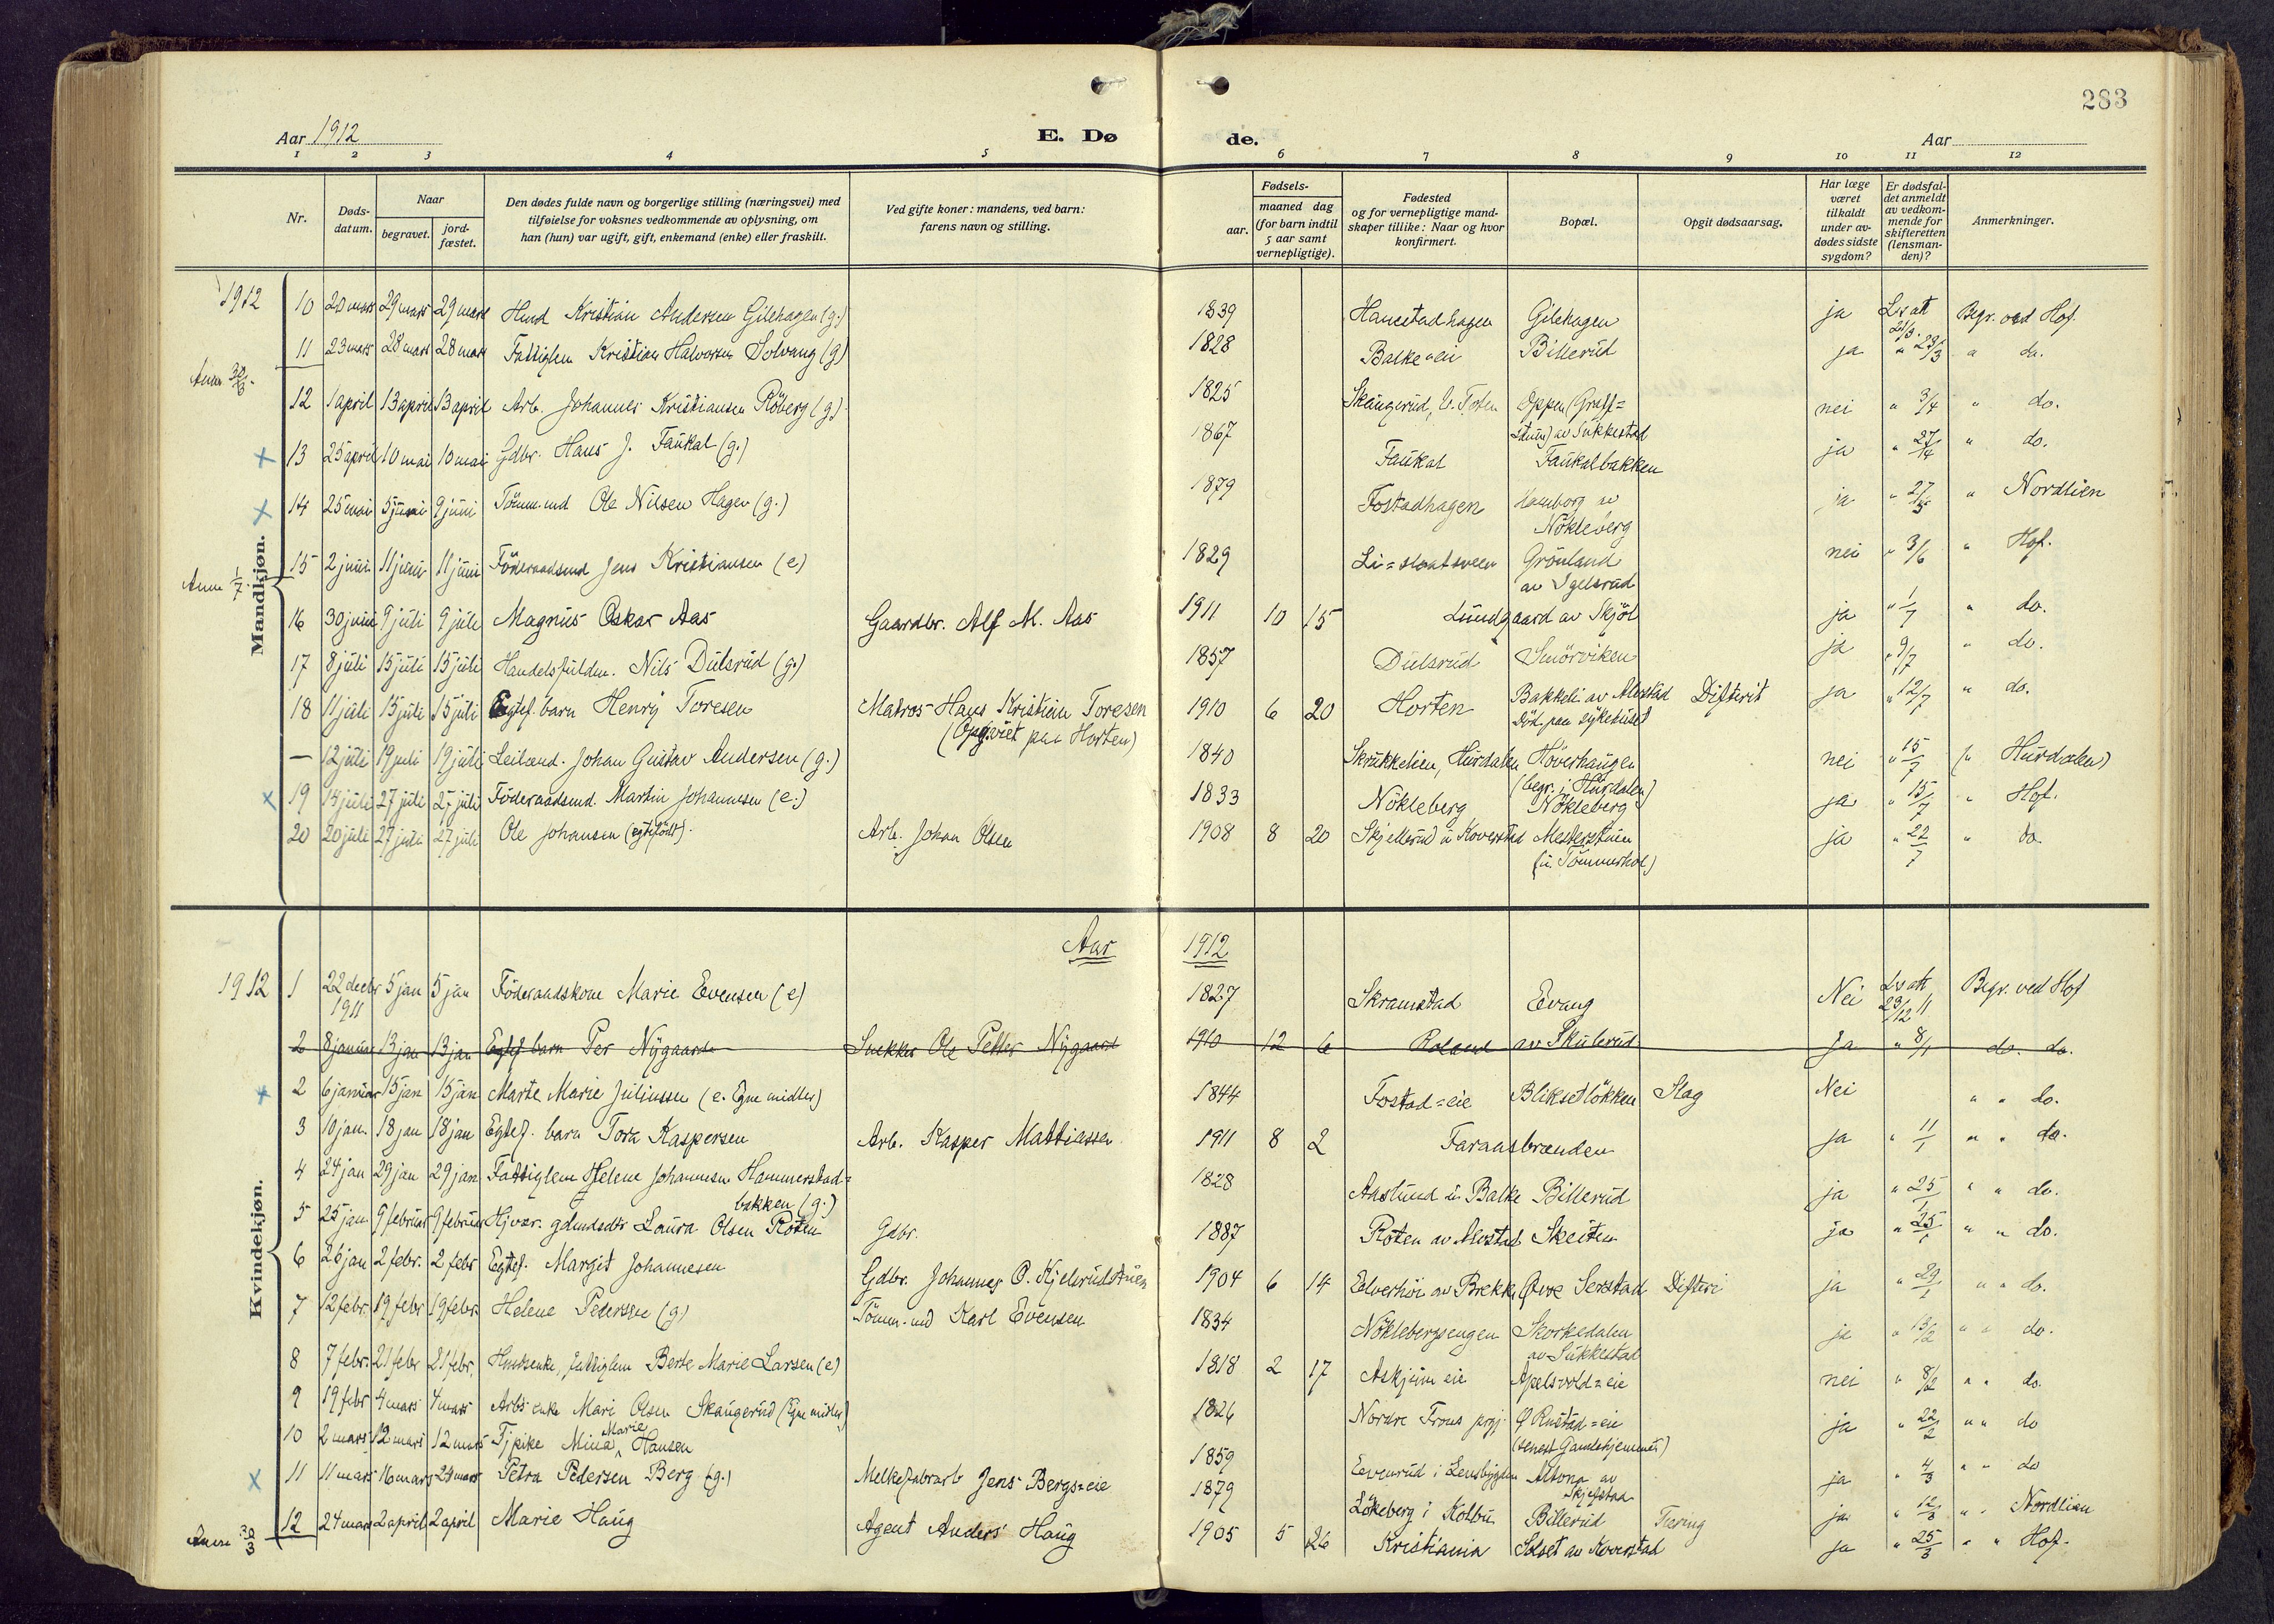 283
Aar 1912 E. Dø de. Aar
1 2 3 4 5 6 7 8 9 10 11 12
Nr.
Døds-datum.
Naar
begravet.
jord-fæstet.
Den dødes fulde navn og borgerlige stilling (næringsvei) med
tilføielse for voksnes vedkommende av oplysning, om
han (hun) var ugift, gift, enkemand (enke) eller fraskilt.
Ved gifte koner: mandens, ved barn:
farens navn og stilling.
Fødsels-
aar.
maaned dag
(for barn indtil
5 aar samt
vernepligtige).
Fødested
og for vernepligtige mand-
skaper tillike: Naar og hvor
konfirmert.
Bopæl.
Opgit dødsaarsag.
Har læge
været
tilkaldt
under av-
dødes sidste
sygdom?
Er dødsfal-
det anmeldt
av vedkom-
mende for
skifteretten
(lensman-
den)?
Anmerkninger.
Mandkjøn.
1912 10 20 mars 29 mars 29 mars Hmd Kristian Andersen Gilehagen (g.) 1839 Hanestadhagen Gilehagen ja Lsatt Begr. ved Hof.
11 23 mars 28 mars 28 mars Fattiglem Kristian Halvorsen Solvang (g) 1828 Balke=eie Billerud ja " 23/3 " do.
Anm 30/3.
12 1 april 13 april 13 april Arb. Johannes Kristiansen Röberg (g). 1825 Skaugerud, V. Toten Oppen (Graff=stuen) av Sukkestad nei " 3/4 " do.
13 25 april 10 mai 10 mai Gdbr. Hans J. Faukal (g.) 1867 Faukal Faukalbakken ja " 27/4 " do.
14 25 mai 5 juni 9 juni Tömm.md Ole Nilsen Hagen (g.) 1879 Fostadhagen Hamborg av Nökleberg ja " 27/5 " Nordlien
15 2 juni 11 juni 11 juni Föderaadsmd Jens Kristiansen (e) 1829 Li=slaatsveen Grönland av Igelsrud nei " 3/6 " Hof.
Anm 1/7.
16 30 juni 9 juli 9 juli Magnus Oskar Aas Gaardbr. Alf M. Aas 1911 10 15 Lundgaard av Skjöl ja " 1/7 " do.
17 8 juli 15 juli 15 juli Handelsfuldm. Nils Dulsrud (g.) 1857 Dulsrud Smörviken ja " 9/7 " do.
18 11 juli 15 juli 15 juli Egtef. barn Henry Toresen Matros Hans Kristian Toresen 1910 6 20 Horten Bakkeli av Alvstad Difterit ja " 12/7 " do.
(Opgivet paa Horten) Död paa sykehuset
— 12 juli 19 juli 19 juli Leilænd. Johan Gustav Andersen (g.) 1840 Skrukkelien, Hurdalen Höverhaugen nei " 15/7 (" Hurdalen)
(begr. i Hurdalen)
19 14 juli 27 juli 27 juli Föderaadsmd. Martin Johannesen (e.) 1833 Nökleberg Nökleberg ja " 15/7 " Hof.
20 20 juli 27 juli 27 juli Ole Johansen (egtefödt). Arb. Johan Olsen 1908 8 20 Skjellerud u Koverstad Mesterstuen ja " 22/7 " do
(u. Tömmerhol)
Aar 1912
Kvindekjøn.
1912 1 22 decbr 1911 5 jan 5 jan Föderaadskone Marie Evensen (e) 1827 Skramstad Evang Nei Lsatt 23/12 11 Begr. ved Hof
2 8 januar 13 jan 13 jan Egtef barn Per Nygaard Snekker Ole Petter Nygaard 1910 12 6 Roland av Skulerud Ja " 8/1 do. do.
2 6 januar 15 jan 15 jan Marte Marie Juliussen (e. Egne midler) 1844 Fostad=eie Bliksetlökken Slag Nei " " do.
3 10 jan. 18 jan 18 jan Egtef. barn Tora Kaspersen Arb. Kasper Mattiassen 1911 8 2 Faraasbrænden ja " 11/1 " " do.
4 24 jan 29 jan 29 jan Fattiglem Helene Johannesen Hammerstad=bakken (g.) 1828 Aaslund u. Balke Billerud ja " 25/1 " " do.
5 25 jan. 9 februar 9 februar Hjvær. gdmdsdtr Laura Olsen Roten Gdbr. 1887 Roten av Alvstad Skeiten ja " 25/1 " " do.
6 26 jan 2 febr. 2 febr Egtef. Margit Johannesen Gdbr. Johannes O. Kjelsrudstuen 1904 6 14 Edverhöi av Brekke Övre Serstad Difteri ja " 29/1 " " do.
7 12 febr. 19 febr 19 febr. Helene Pedersen (g) Tömm.md Karl Evensen 1834 Nöklebergsengen Skorkedalen av Sukkestad ja " 13/2 " " do.
8 7 febr. 21 febr 21 febr. Husmenke, fattiglem Berte Marie Larsen (e) 1818 2 17 Askjum eie Apelsvold=eie nei " 8/2 " " do.
9 19 febr 4 mars 4 mars Arbs enke Mari Olsen Skaugerud (Egne midler) 1826 Nordre Frous prgj. Ö Rustad=eie ja " 22/2 " " do
(senest Gamlehjemmet)
10 2 mars 12 mars 12 mars Tjpike Mina Marie Hansen 1859 Evenrud i Lensbygden Altona av Skjefstad ja " 4/3 " " do
11 11 mars 16 mars 24 mars Petra Pedersen Berg (g.) Melkefabrarb Jens Bergs=eie 1879 Lökeberg i Kolbu Billerud Tæring ja " 12/3 " " Nordlien
12 24 mars 2 april 2 april Marie Haug Agent Anders Haug 1905 5 26 Kristiania Solset av Koverstad ja " 25/3 " " Hof.
Anm 30/3